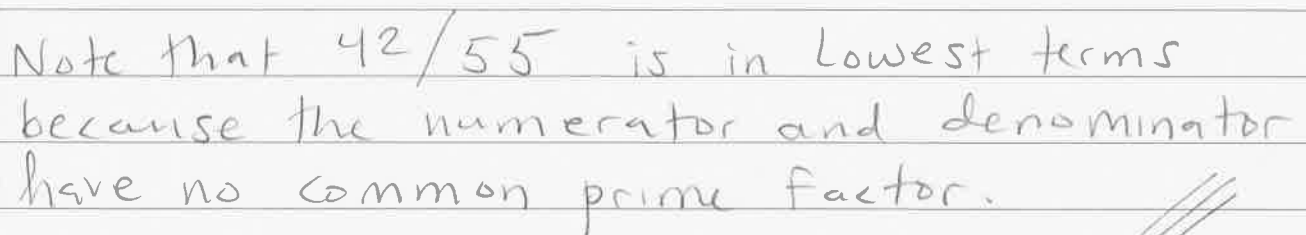 Note that 42/55 is in lowest terms
because the numerator and denominator
have no common prime factor.